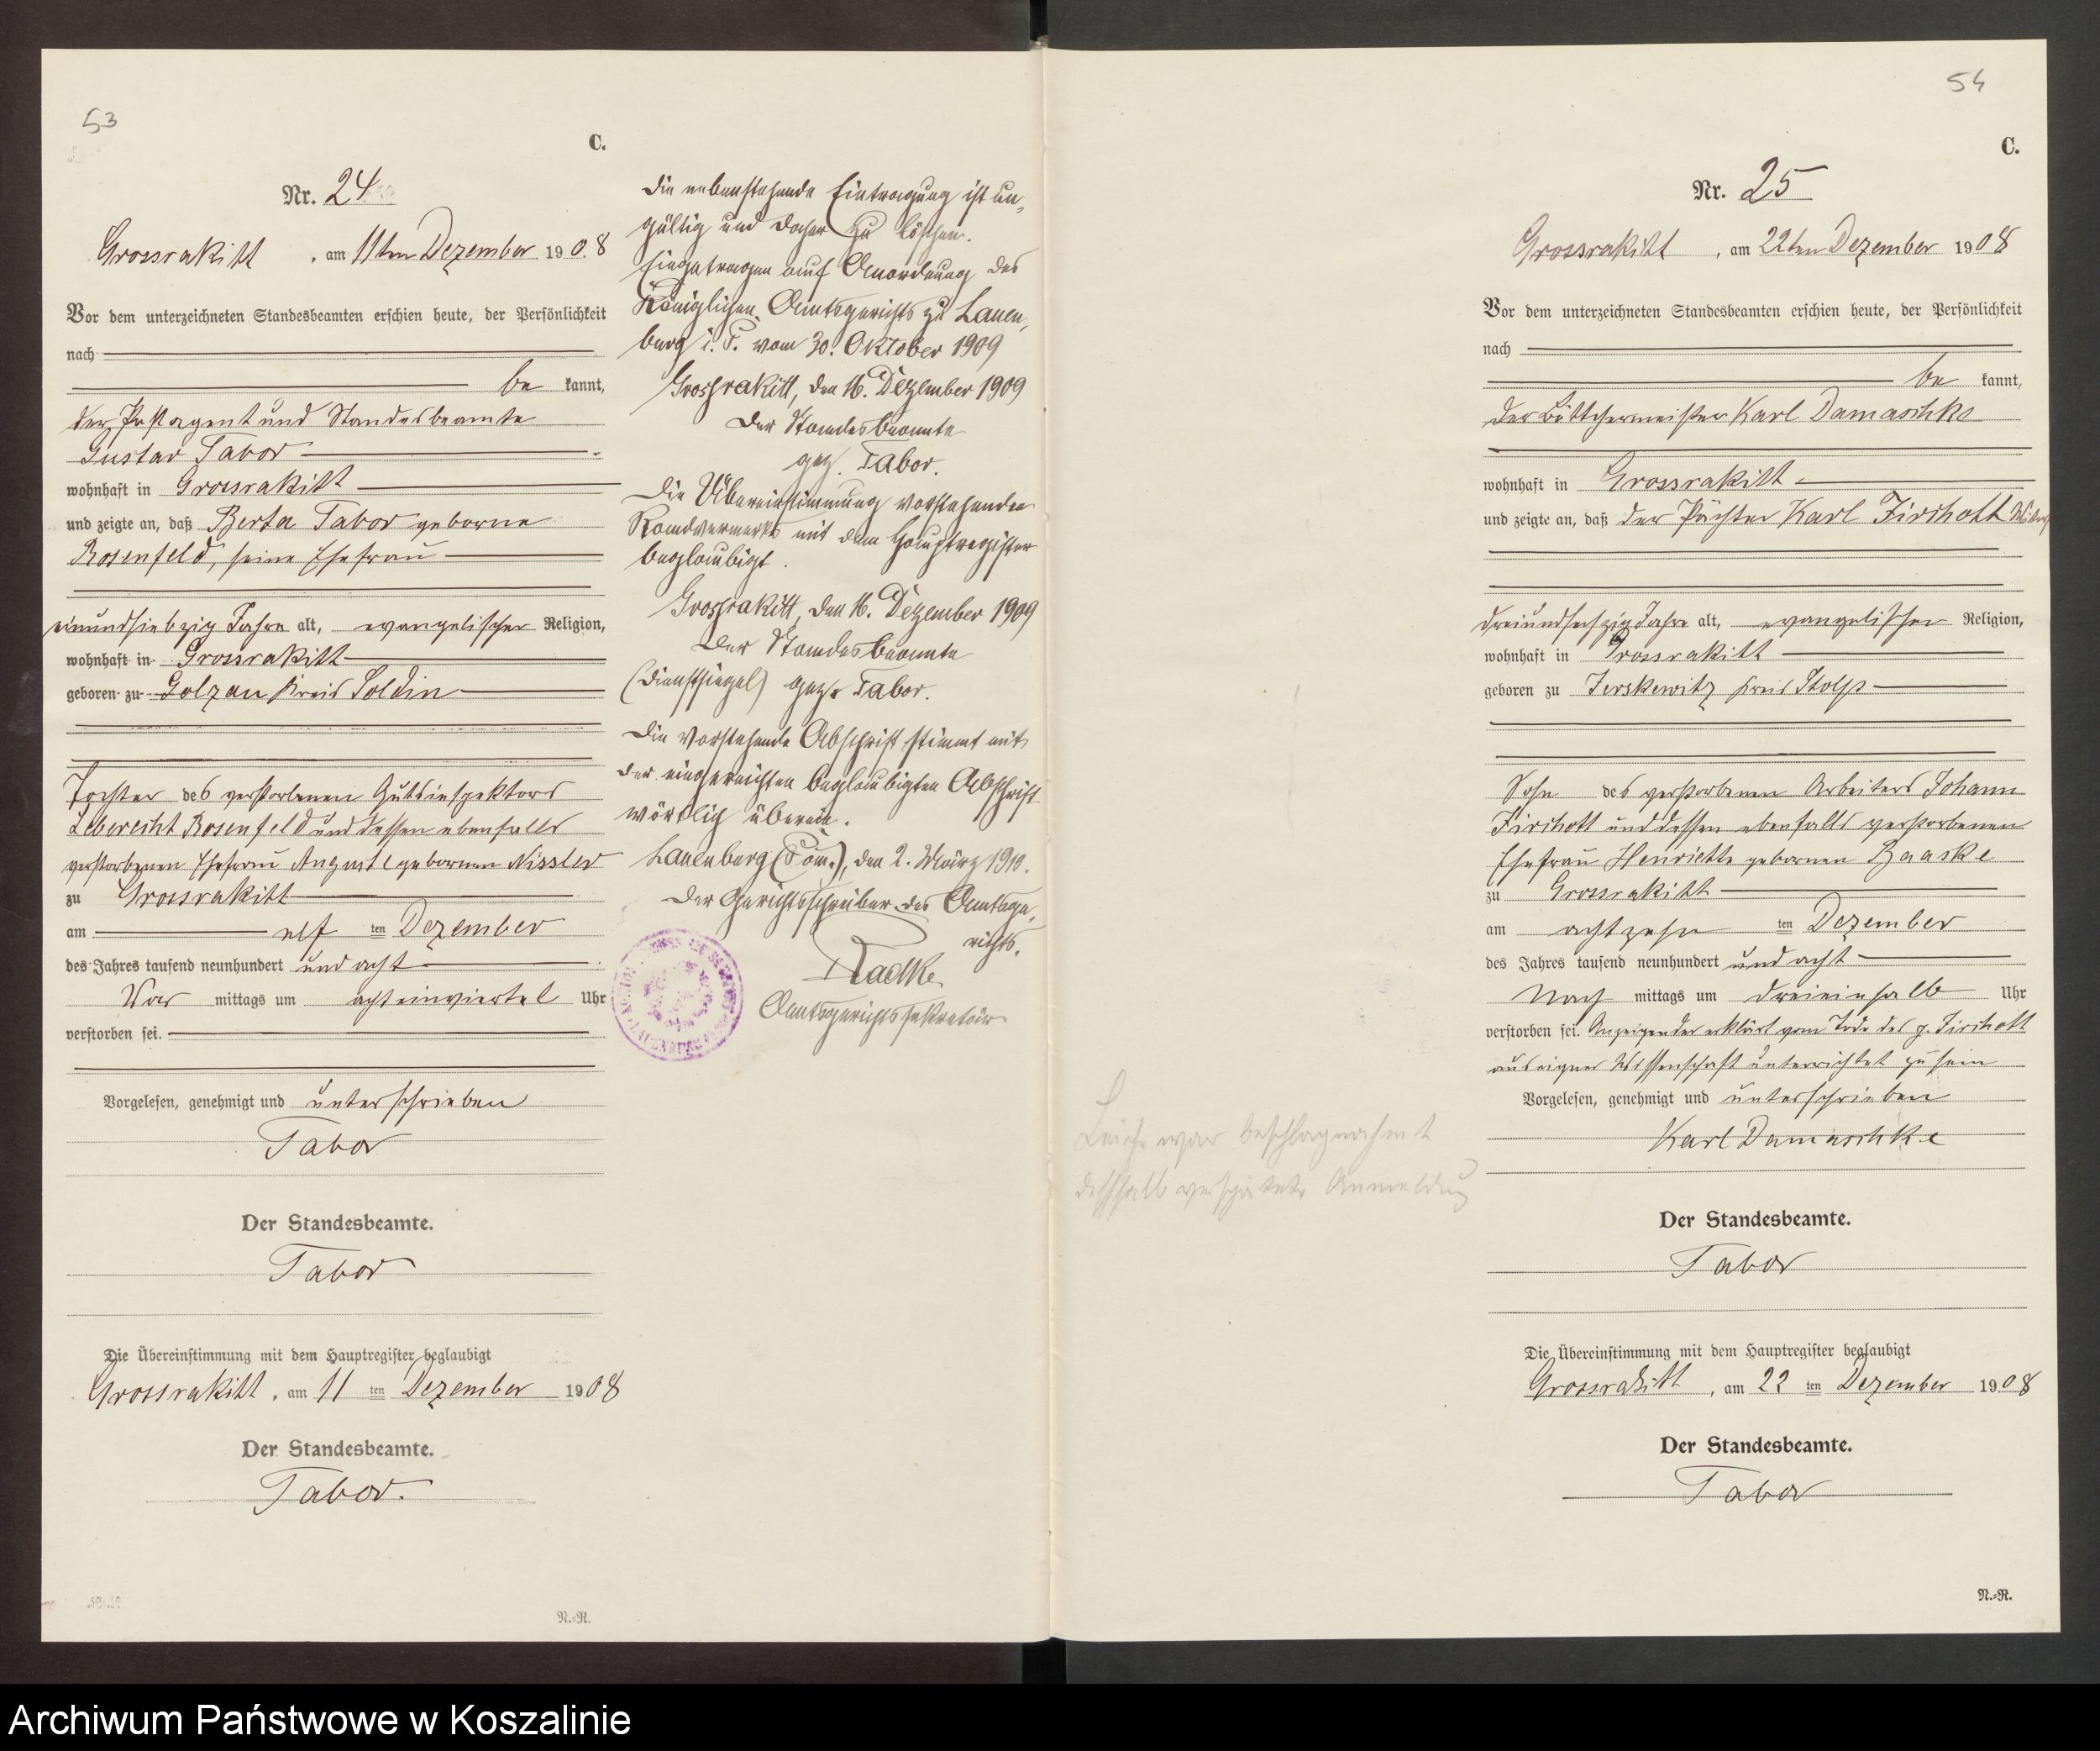 53
C.
Nr. 24
Grossrakitt, am 11ten Dezember 1908
Vor dem unterzeichneten Standesbeamten erschien heute, der Persönlichkeit
nach
be kannt,
der Postagent und Standesbeamte
Gustav Tabor
wohnhaft in Grossrakitt
und zeigte an, daß Berta Tabor geborne
Rosenfeld, seine Ehefrau
einundsiebzig Jahre alt, evangelischer Religion,
wohnhaft in Grossrakitt
geboren zu Golzau Kreis Soldin
Tochter des verstorbenen Gutsinspektors
Leberecht Rosenfeld und dessen ebenfalls
verstorbenen Ehefrau Auguste gebornen Nissler
zu Grossrakitt
am elf ten Dezember
des Jahres tausend neunhundert und acht
Vor mittags um acht einviertel Uhr
verstorben sei.
Vorgelesen, genehmigt und unterschrieben
Tabor
Der Standesbeamte.
Tabor
Die Übereinstimmung mit dem Hauptregister beglaubigt
Grossrakitt, am 11 ten Dezember 1908
Der Standesbeamte.
Tabor.
N.-R.
Die nebenstehende Eintragung ist un-
gültig und daher zu löschen.
Eingetragen auf Anordnung des
Königlichen Amtsgerichts zu Lauen-
burg i. P. vom 30. Oktober 1909
Grossrakitt, den 16. Dezember 1909
Der Standesbeamte
gez. Tabor.
Die Übereinstimmung vorstehenden
Randvermerks mit dem Hauptregister
beglaubigt.
Grossrakitt, den 16. Dezember 1909
Der Standesbeamte
(Dienstsiegel) gez. Tabor.
Die vorstehende Abschrift stimmt mit
der eingereichten beglaubigten Abschrift
wörtlich überein.
Lauenburg (Pom.), den 2. März 1910.
Der Gerichtsschreiber des Amtsge-
richts.
Radke
Amtsgerichtssekretär
54
C.
Nr. 25
Grossrakitt, am 22ten Dezember 1908
Vor dem unterzeichneten Standesbeamten erschien heute, der Persönlichkeit
nach
be kannt,
der Böttchermeister Karl Damaschke
wohnhaft in Grossrakitt
und zeigte an, daß der Pächter Karl Firchott
dreiundsechzig Jahre alt, evangelischer Religion,
wohnhaft in Grossrakitt
geboren zu Jerskewitz Kreis Stolp
Sohn des verstorbenen Arbeiters Johann
Firchott und dessen ebenfalls verstorbenen
Ehefrau Henriette gebornen Baaske
zu Grossrakitt
am achtzehn ten Dezember
des Jahres tausend neunhundert und acht
Nach mittags um dreieinhalb Uhr
verstorben sei. Anzeigender erklärt vom Tode des p. Firchott
aus eigner Wissenschaft unterrichtet zu sein
Vorgelesen, genehmigt und unterschrieben
Karl Damaschke
Der Standesbeamte.
Tabor
Die Übereinstimmung mit dem Hauptregister beglaubigt
Grossrakitt, am 22 ten Dezember 1908
Der Standesbeamte.
Tabor
N.-R.
Leiche war beschlagnahmt
deshalb verspätete Anmeldung
Archiwum Państwowe w Koszalinie